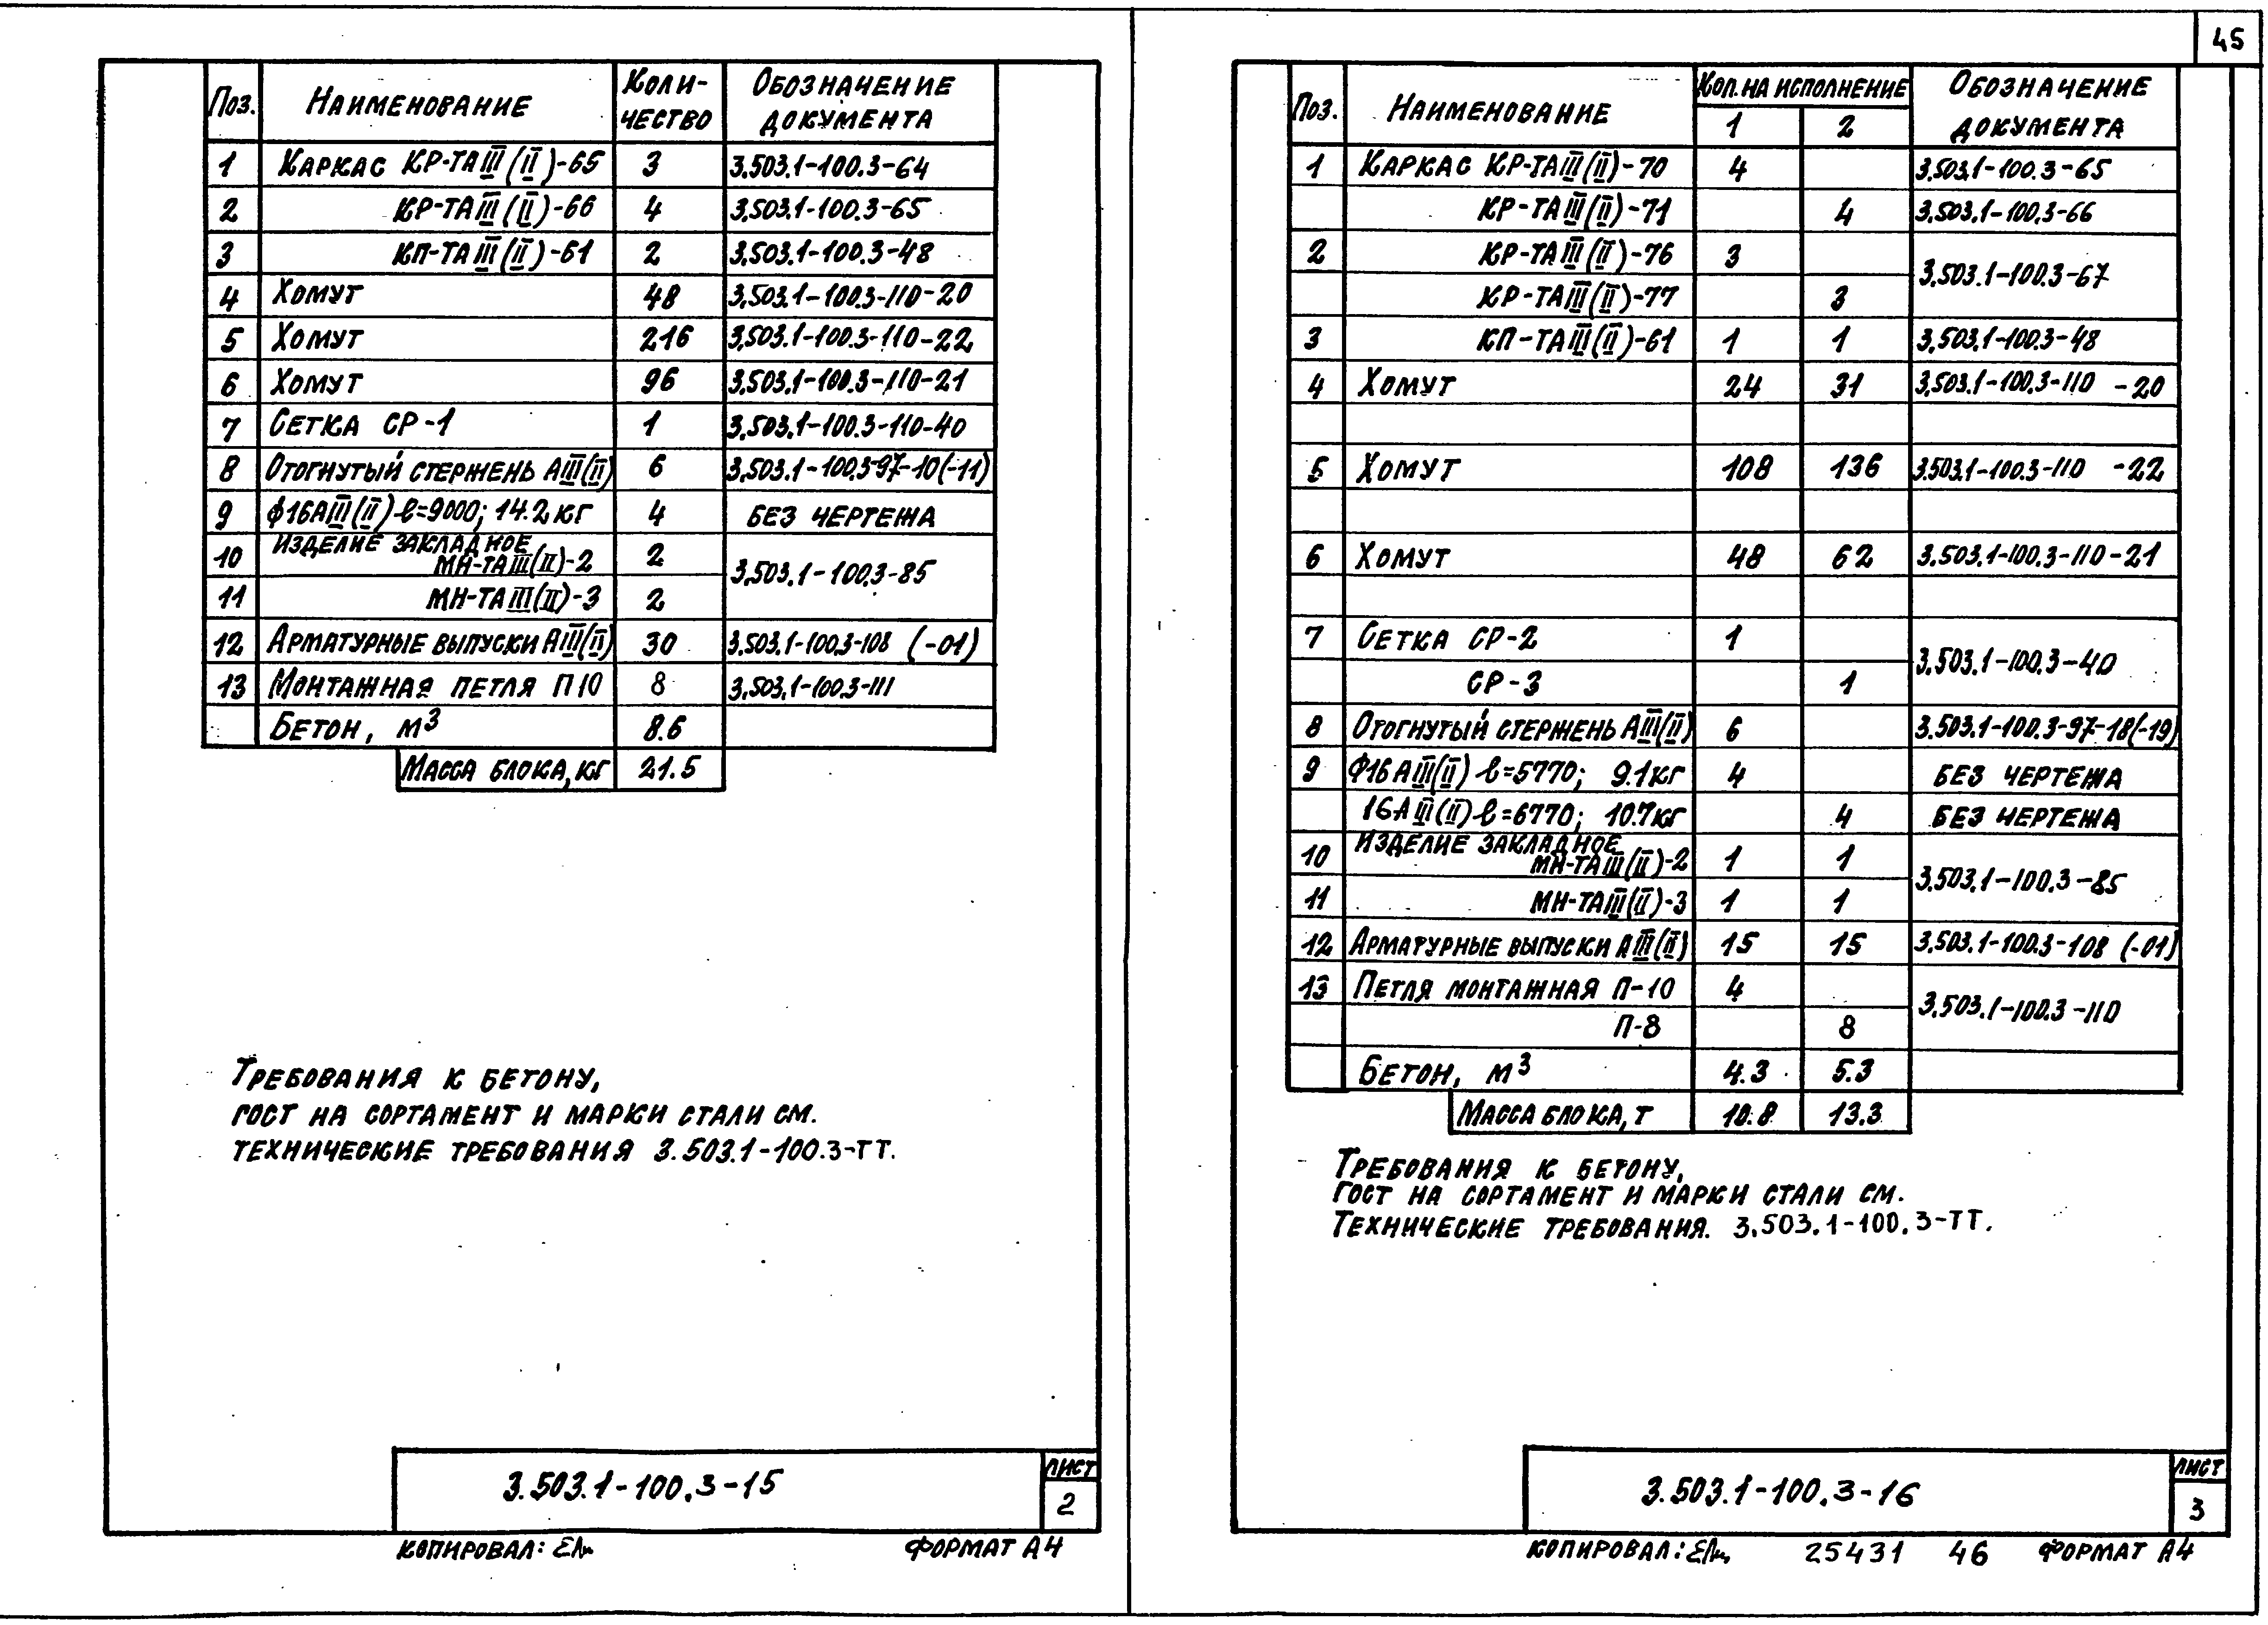 45
Поз. Наименование Коли-чество Обозначение документа
1 Каркас КР-ТАIII(II)-65 3 3.503.1-100.3-64
2 КР-ТАIII(II)-66 4 3.503.1-100.3-65
3 КП-ТАIII(II)-61 2 3.503.1-100.3-48
4 Хомут 48 3.503.1-100.3-110-20
5 Хомут 216 3.503.1-100.3-110-22
6 Хомут 96 3.503.1-100.3-110-21
7 Сетка СР-1 1 3.503.1-100.3-110-40
8 Отогнутый стержень АIII(II) 6 3.503.1-100.3-97-10(-11)
9 ф16АIII(II) ℓ=9000; 14.2кг 4 без чертежа
10 Изделие закладное МН-ТАIII(II)-2 2 3.503.1-100.3-85
11 МН-ТАIII(II)-3 2
12 Арматурные выпуски АIII(II) 30 3.503.1-100.3-108 (-01)
13 Монтажная петля П10 8 3.503.1-100.3-111
Бетон, м³ 8.6
Масса блока, кг 21.5
Требования к бетону,
ГОСТ на сортамент и марки стали см.
технические требования 3.503.1-100.3-ТТ.
3.503.1-100.3-15
лист
2
Копировал:
Формат А4
Поз. Наименование Кол. на исполнение Обозначение документа
1 2
1 Каркас КР-ТАIII(II)-70 4 3.503.1-100.3-65
КР-ТАIII(II)-71 4 3.503.1-100.3-66
2 КР-ТАIII(II)-76 3 3.503.1-100.3-67
КР-ТАIII(II)-77 3
3 КП-ТАIII(II)-61 1 1 3.503.1-100.3-48
4 Хомут 24 31 3.503.1-100.3-110 -20
5 Хомут 108 136 3.503.1-100.3-110 -22
6 Хомут 48 62 3.503.1-100.3-110-21
7 Сетка СР-2 1 3.503.1-100.3-40
СР-3 1
8 Отогнутый стержень АIII(II) 6 3.503.1-100.3-97-18(-19)
9 Ф16АIII(II) ℓ=5770; 9.1кг 4 без чертежа
16АIII(II) ℓ=6770; 10.7кг 4 без чертежа
10 Изделие закладное МН-ТАIII(II)-2 1 1 3.503.1-100.3-85
11 МН-ТАIII(II)-3 1 1
12 Арматурные выпуски АIII(II) 15 15 3.503.1-100.3-108 (-01)
13 Петля монтажная П-10 4 3.503.1-100.3-110
П-8 8
Бетон, м³ 4.3 5.3
Масса блока, т 10.8 13.3
Требования к бетону,
ГОСТ на сортамент и марки стали см.
Технические требования. 3.503.1-100.3-ТТ.
3.503.1-100.3-16
лист
3
Копировал:
25431 46 Формат А4